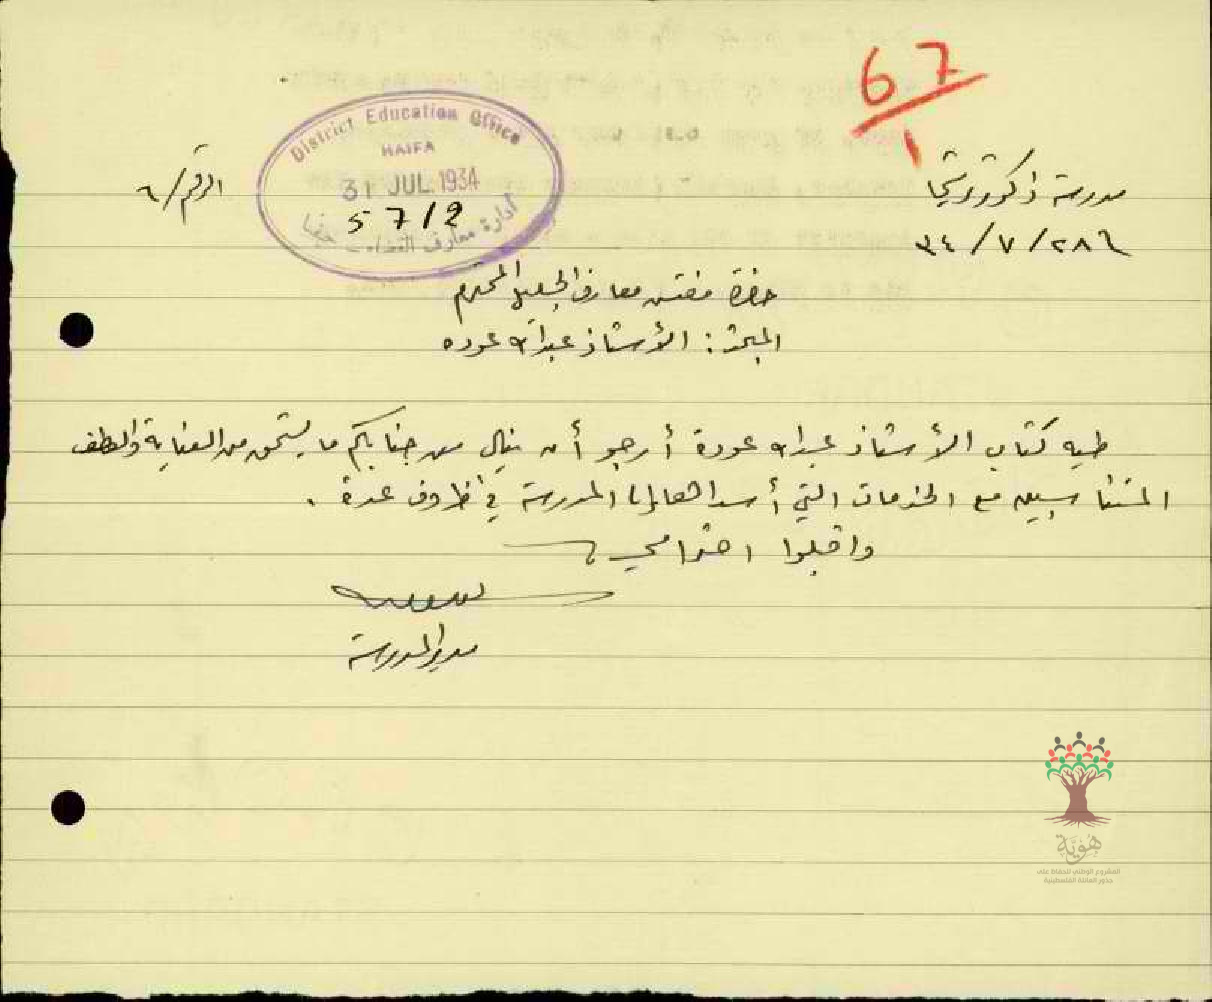 67
1
District Education Office
HAIFA
31 JUL 1934
57/2
إدارة معارف القضاء حيفا
الرقم / ٦
مدرسة ذكور ترشيحا
٢٨ / ٧ / ٣٤
حضرة مفتش معارف الجليل المحترم
المبحث : الأستاذ عبدالله عوده
طيه كتاب الأستاذ عبدالله عودة أرجو أن ينال من جنابكم ما يستحق من العناية والعطف
المتناسبين مع الخدمات التي أسداها المدرسة في ظروف عدة .
واقبلوا احترامي
مدير المدرسة
هوية
المشروع الوطني للحفاظ على
جذور العائلة الفلسطينية